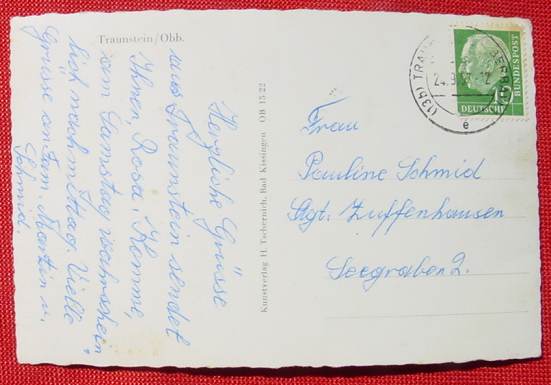 Traunstein/Obb.
Herzliche Grüsse
aus Traunstein sendet
Ihnen, Rosa. Komme,
am Samstag wahrschein
lich nachmittag. Vielle
Grüsse an Fam. Martin u.
Schmid.
Kunstverlag H. Tschernich, Bad Kissingen OB 15 22
(13b) TRAUN
24.9
e
DEUTSCHE
BUNDESPOST
Frau
Pauline Schmid
Stgt. Zuffenhausen
Seegraben 2.